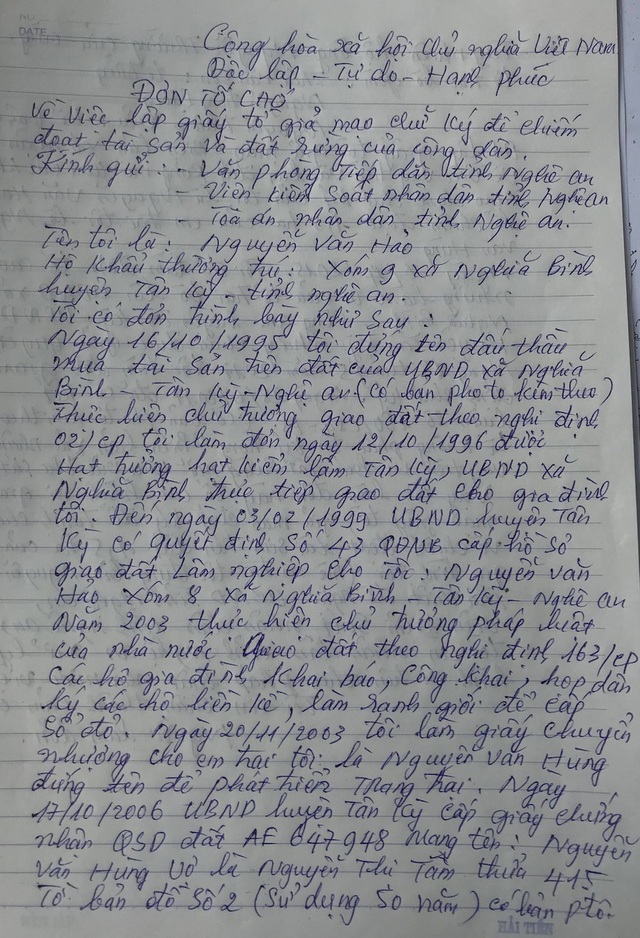 DATE
Cộng hòa xã hội chủ nghĩa Việt Nam
Độc lập - Tự do - Hạnh phúc
ĐƠN TỐ CÁO
Về việc lập giấy tờ giả mạo chữ ký để chiếm
đoạt tài sản và đất rừng của công dân.
Kính gửi: - Văn phòng Tiếp dân tỉnh Nghệ an
- Viện kiểm soát nhân dân tỉnh Nghệ an
- Toà án nhân dân tỉnh Nghệ an.
Tên tôi là: Nguyễn Văn Hảo
Hộ khẩu thường trú: Xóm 9 xã Nghĩa Bình
huyện Tân Kỳ - tỉnh nghệ an.
Tôi có đơn trình bày như sau:
Ngày 16/10/1995 tôi đứng tên đấu thầu
mua tài sản trên đất của UBND xã Nghĩa
Bình - Tân Kỳ - Nghệ an (có bản photo kèm theo)
Thực hiện chủ trương giao đất theo nghị định
02/cp tôi làm đơn ngày 12/10/1996 được
Hạt trưởng hạt kiểm lâm Tân Kỳ, UBND xã
Nghĩa Bình trực tiếp giao đất cho gia đình
tôi. Đến ngày 03/02/1999 UBND huyện Tân
Kỳ có quyết định số 43 QĐNB cấp hồ sơ
giao đất Lâm nghiệp cho Tôi: Nguyễn văn
Hảo Xóm 8 xã Nghĩa Bình - Tân Kỳ - Nghệ an
Năm 2003 thực hiện chủ trương pháp luật
của nhà nước Giao đất theo nghị định 163/cp
Các hộ gia đình khai báo, công khai, họp dân
ký các hộ liền kề, làm ranh giới để cấp
sổ đỏ. Ngày 20/11/2003 tôi làm giấy chuyển
nhượng cho em trai tôi là Nguyễn Văn Hùng
đứng tên để phát triển Trang trại. Ngày
17/10/2006 UBND huyện Tân Kỳ cấp giấy chứng
nhận QSD đất AE 647948 mang tên: Nguyễn
Văn Hùng Vợ là Nguyễn Thị Tâm thửa 415
Tờ bản đồ số 2 (sử dụng 50 năm) có bản ptô.
HẢI TIẾN